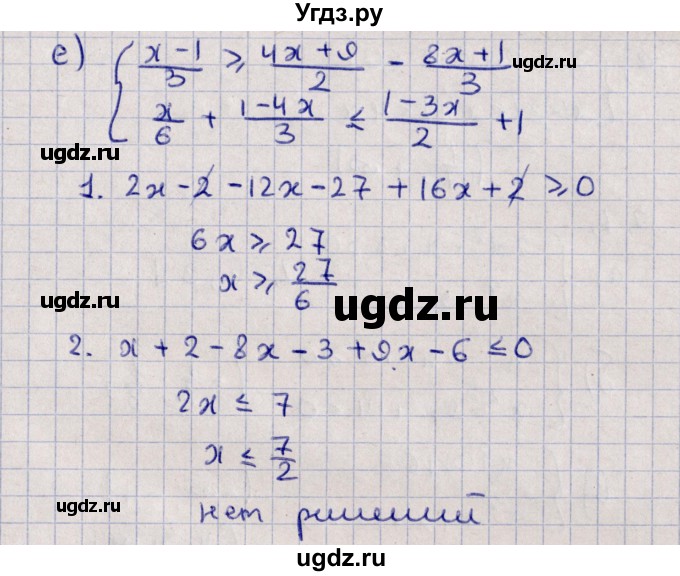 Угдз.ру
е) { (x-1)/3 ⩾ (4x+9)/2 - (8x+1)/3
x/6 + (1-4x)/3 ≤ (1-3x)/2 + 1
ugdz.ru
ugdz.ru
ugdz.ru
1. 2x-2-12x-27+16x+2 ⩾ 0
6x ⩾ 27
x ⩾ 27/6
ugdz.ru
ugdz.ru
2. x+2-8x-3+9x-6 ≤ 0
2x ≤ 7
x ≤ 7/2
ugdz.ru
ugdz.ru
нет решений
ugdz.ru